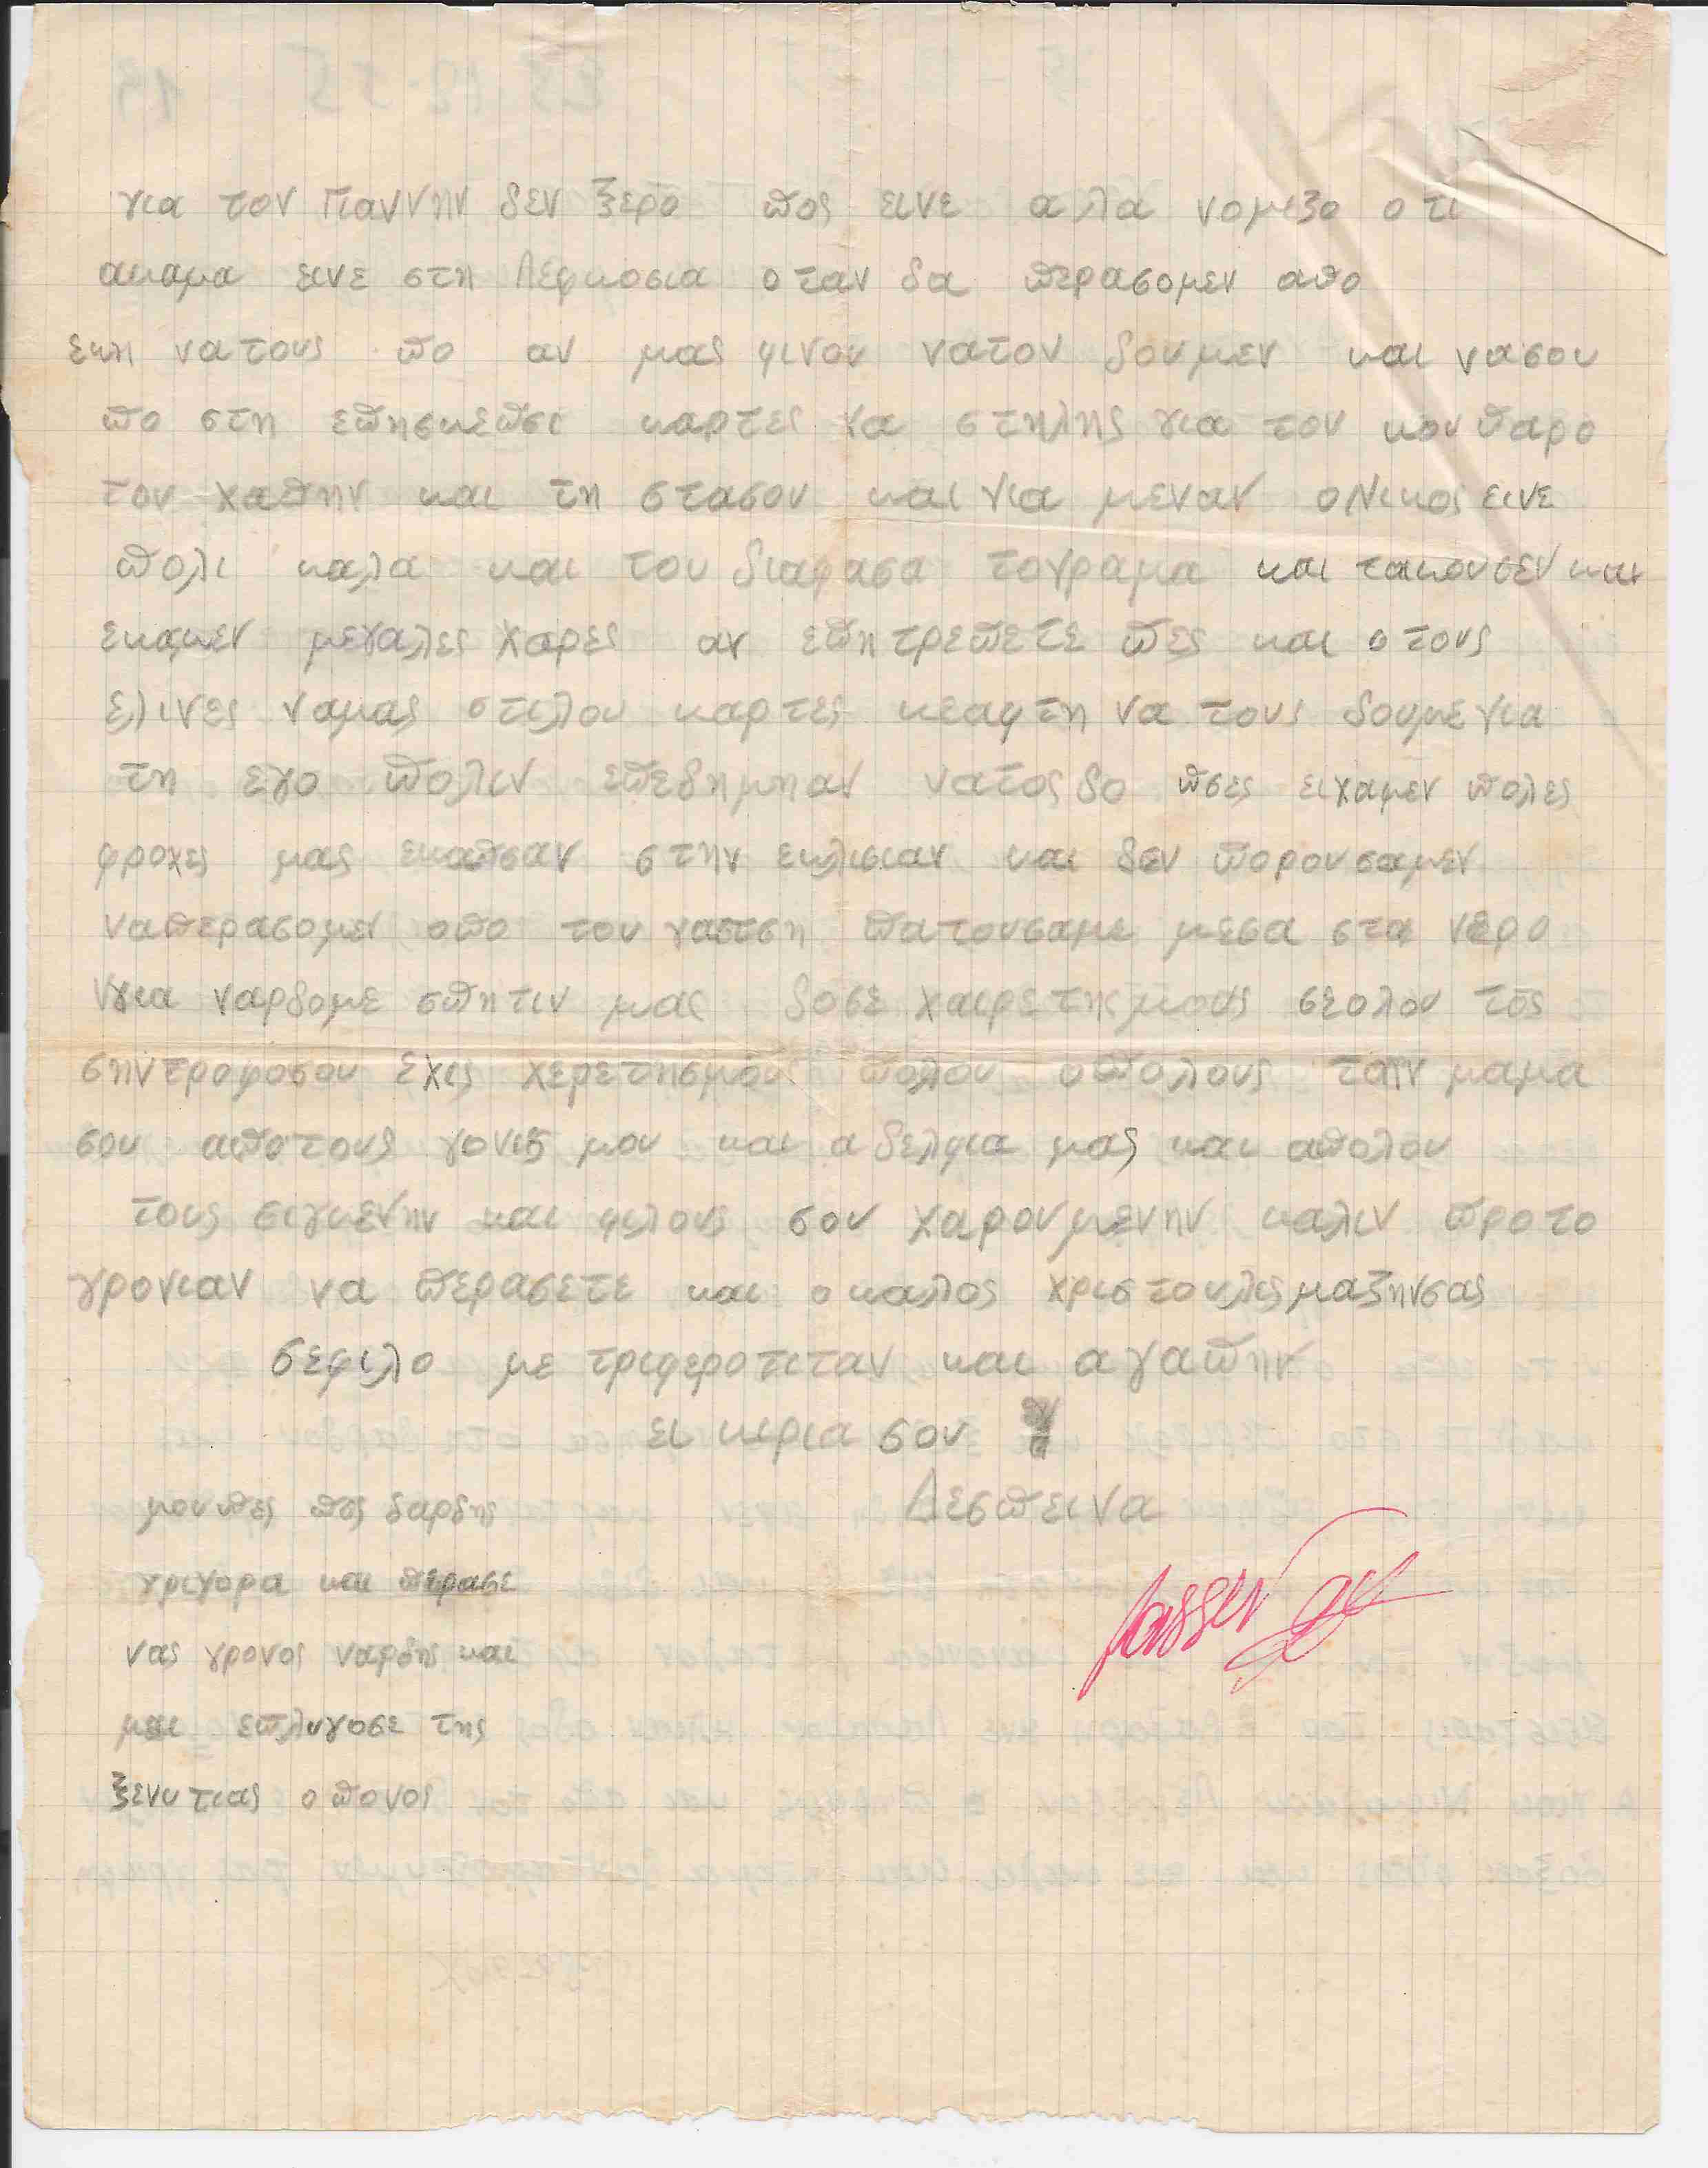 για τον Γιαννην δεν ξερο πος εινε αλα νομιζο οτι
ακαμα εινε στη Λεφκοσια οταν δα περασομεν απο
εκη νατους πο αν μας φινου νατον δουμεν και νασου
πο στη επησκεπσι καρτες να στηλης για τον κουπαρο
τον χαπην και τη στασου και για μεναν ο Νικος εινε
πολι καλα και του διαφασα τογραμα και τακουσεν και
εκαμεν μεγαλες χαρες αν επητρεπετε πες και στους
ελινες ναμας στιλου καρτες κεαφτη να τους δουμε για
τη εγο πολιν επεδημησαν νατος δο πσες ειχαμεν πολες
φροχες μας εκαπσαν στην εκλισιαν και δεν πορουσαμεν
ναπερασομεν οπο του γαπση πατουσαμε μεσα στα νερο
για ναρδομε σπητιν μας δοσε χαιρετησμους σεολου τος
σηντροφοσου εχις χερετησμους πολου οπολους την μαμα
σου αποτους γονις μου και αδελφια μας και απολου
τους σιγκενην και φιλους σου χαρουμενην καλιν προτο
χρονιαν να περασετε και ο καλος χριστουλις μαζηνσας
σεφιλο με τριφεροτιταν και αγαπην
ει κιρια σου
Δεσπεινα
μου πες πος δαρδης
γριγορα και περασε
νας χρονος ναρδης και
με επλυγοσε της
ξενυτιας ο πονος